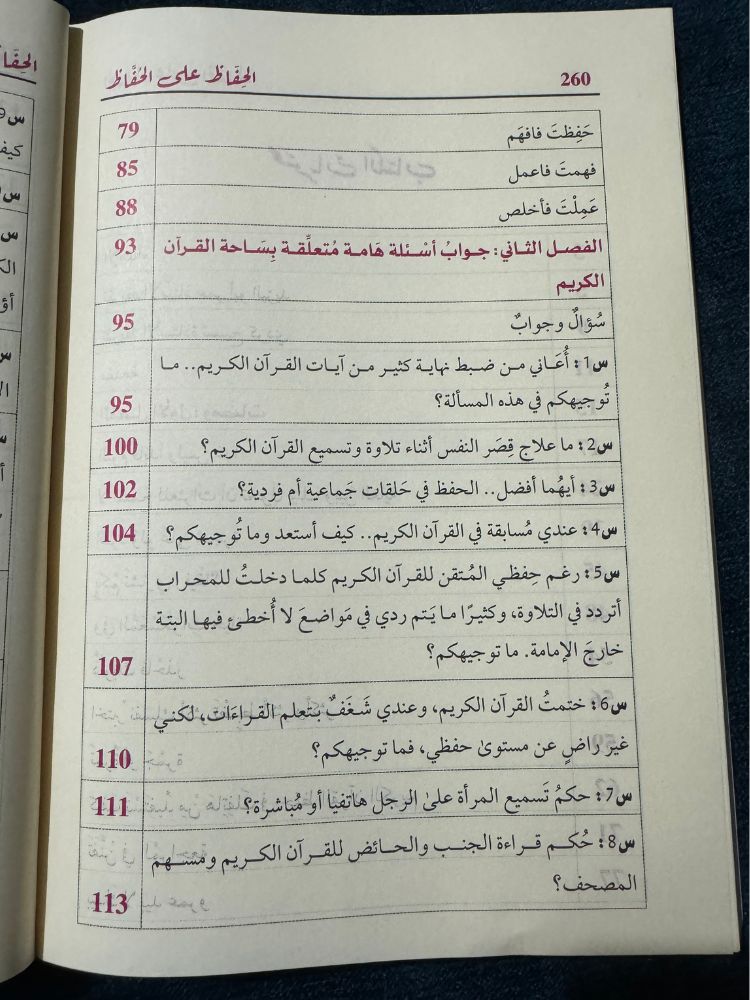 260
الحِفَّاظ على الحُفَّاظ
حَفِظتَ فافهَم 79
فهمتَ فاعمل 85
عَمِلْتَ فأخلص 88
الفصل الثاني: جوابُ أسْئلة هَامة مُتعلِّقة بِسَاحة القرآن 93
الكريم
سُؤالٌ وجوابٌ 95
س1: أُعَاني من ضبط نهاية كثير من آيات القرآن الكريم.. ما
تُوجيهكم في هذه المسألة؟ 95
س2: ما علاج قِصَر النفس أثناء تلاوة وتسميع القرآن الكريم؟ 100
س3: أيهُما أفضل.. الحفظ في حَلقات جَماعية أم فردية؟ 102
س4: عندي مُسابقة في القرآن الكريم.. كيف أستعد وما تُوجيهكم؟ 104
س5: رغم حِفظي المُتقن للقرآن الكريم كلما دخلتُ للمحراب
أتردد في التلاوة، وكثيرًا ما يَتم ردي في مَواضعَ لا أُخطئ فيها البتة
خارجَ الإمامة. ما توجيهكم؟ 107
س6: ختمتُ القرآن الكريم، وعندي شَغَفٌ بتَعلم القراءَات، لكني
غير راضٍ عن مستوىٰ حفظي، فما توجيهكم؟ 110
س7: حكمُ تَسميع المرأة علىٰ الرجل هاتفيا أو مُباشرة؟ 111
س8: حُكم قراءة الجنب والحائض للقرآن الكريم ومسهم
المصحف؟ 113